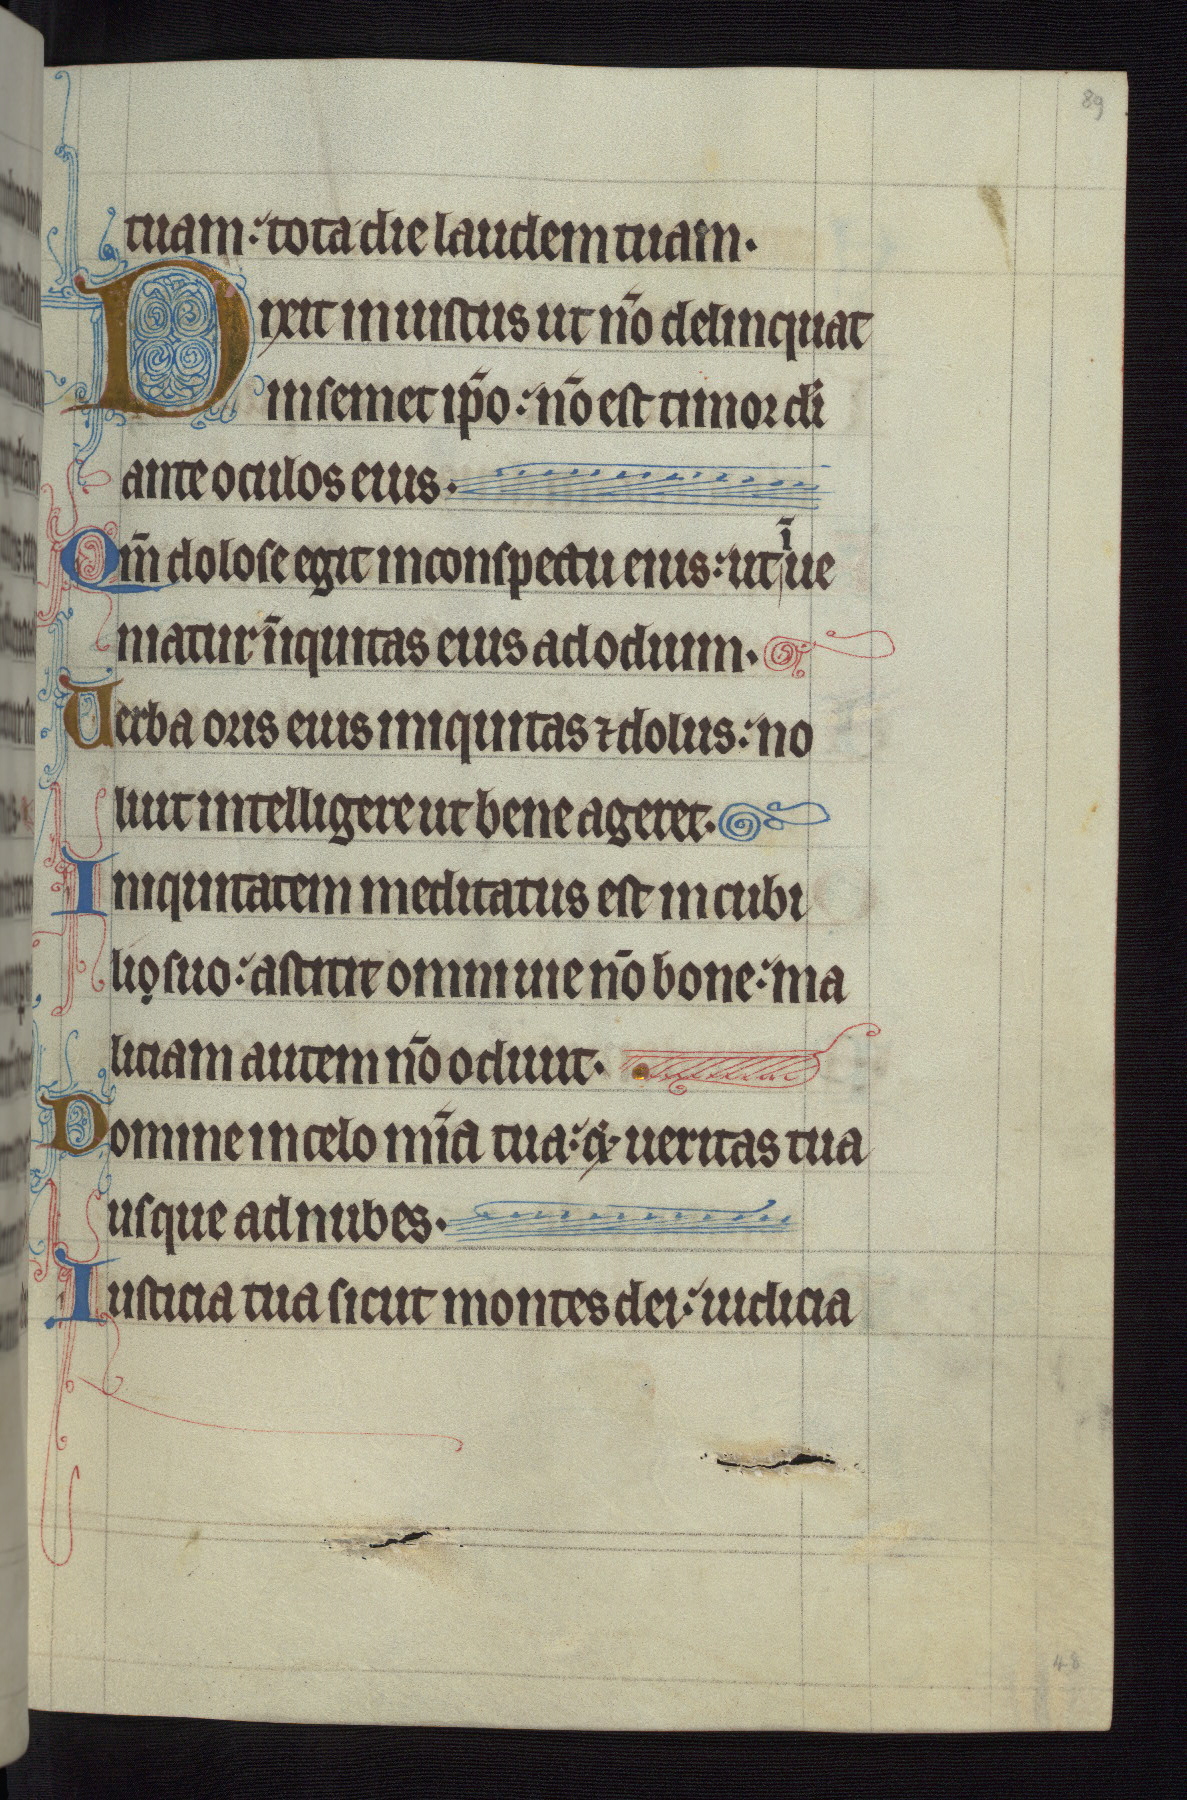 89
tuam: tota die laudem tuam.
Dixit iniustus ut nō delinquat
in semet ip̄o: nō est timor dī
ante oculos eius.
Qm̄ dolose egit in conspectu eius: ut īue
niatur īiquitas eius ad odium.
Verba oris eius iniquitas ⁊ dolus: no
luit intelligere ut bene ageret.
Iniquitatem meditatus est in cubi
lio suo: astitit omni uie nō bone: ma
liciam autem nō odiuit.
Domine in celo mīa tua: & ueritas tua
usque ad nubes.
Iusticia tua sicut montes dei: iudicia
48